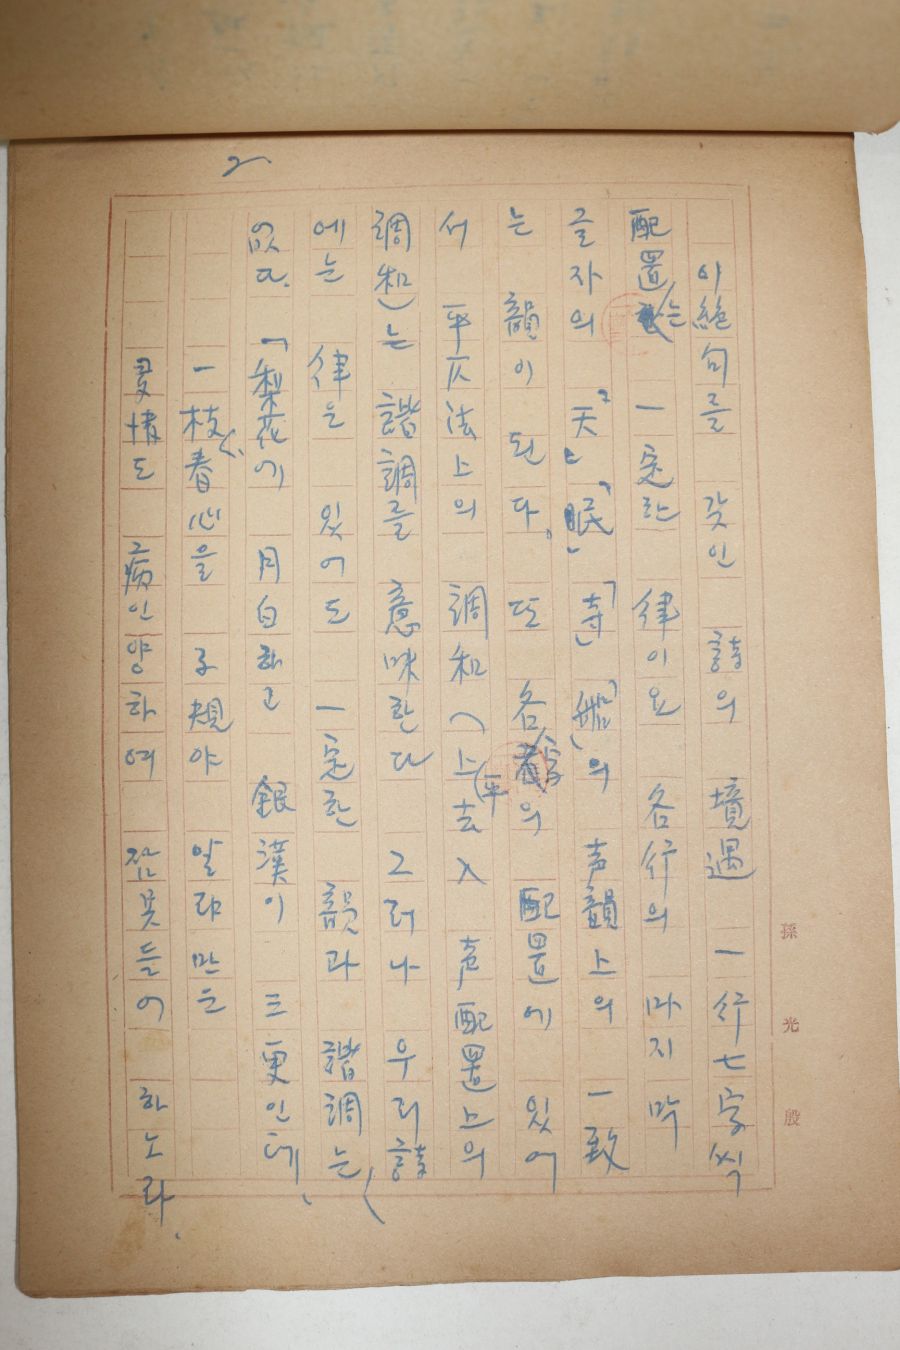 2
이 絶句를 갖인 詩의 境遇 一行七字씩
配置는 一定한 律이요 各行의 마지막
글자의 「天」「眠」「寺」「船」의 声韻上의 一致
는 韻이 된다。 또 各字의 配置에 있어
서 平仄法上의 調和(平上去入 声配置上의
調和)는 諧調를 意味한다 그러나 우리詩
에는 律은 있어도 一定한 韻과 諧調는
없다. 「梨花에 月白하고 銀漢이 三更인데、
一枝春心을 子規야 알랴만는
多情도 病인양하여 잠못들어 하노라.
孫光殷